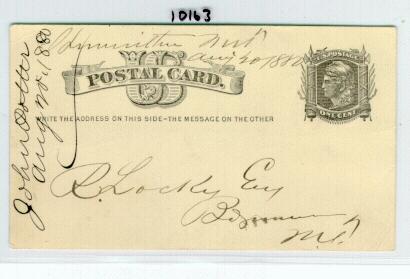 10163
Aug 20 1880
U.S. POSTAGE
POSTAL CARD.
ONE CENT
WRITE THE ADDRESS ON THIS SIDE-THE MESSAGE ON THE OTHER
John
Aug 20, 1880
R. Locky Esq
M.T.